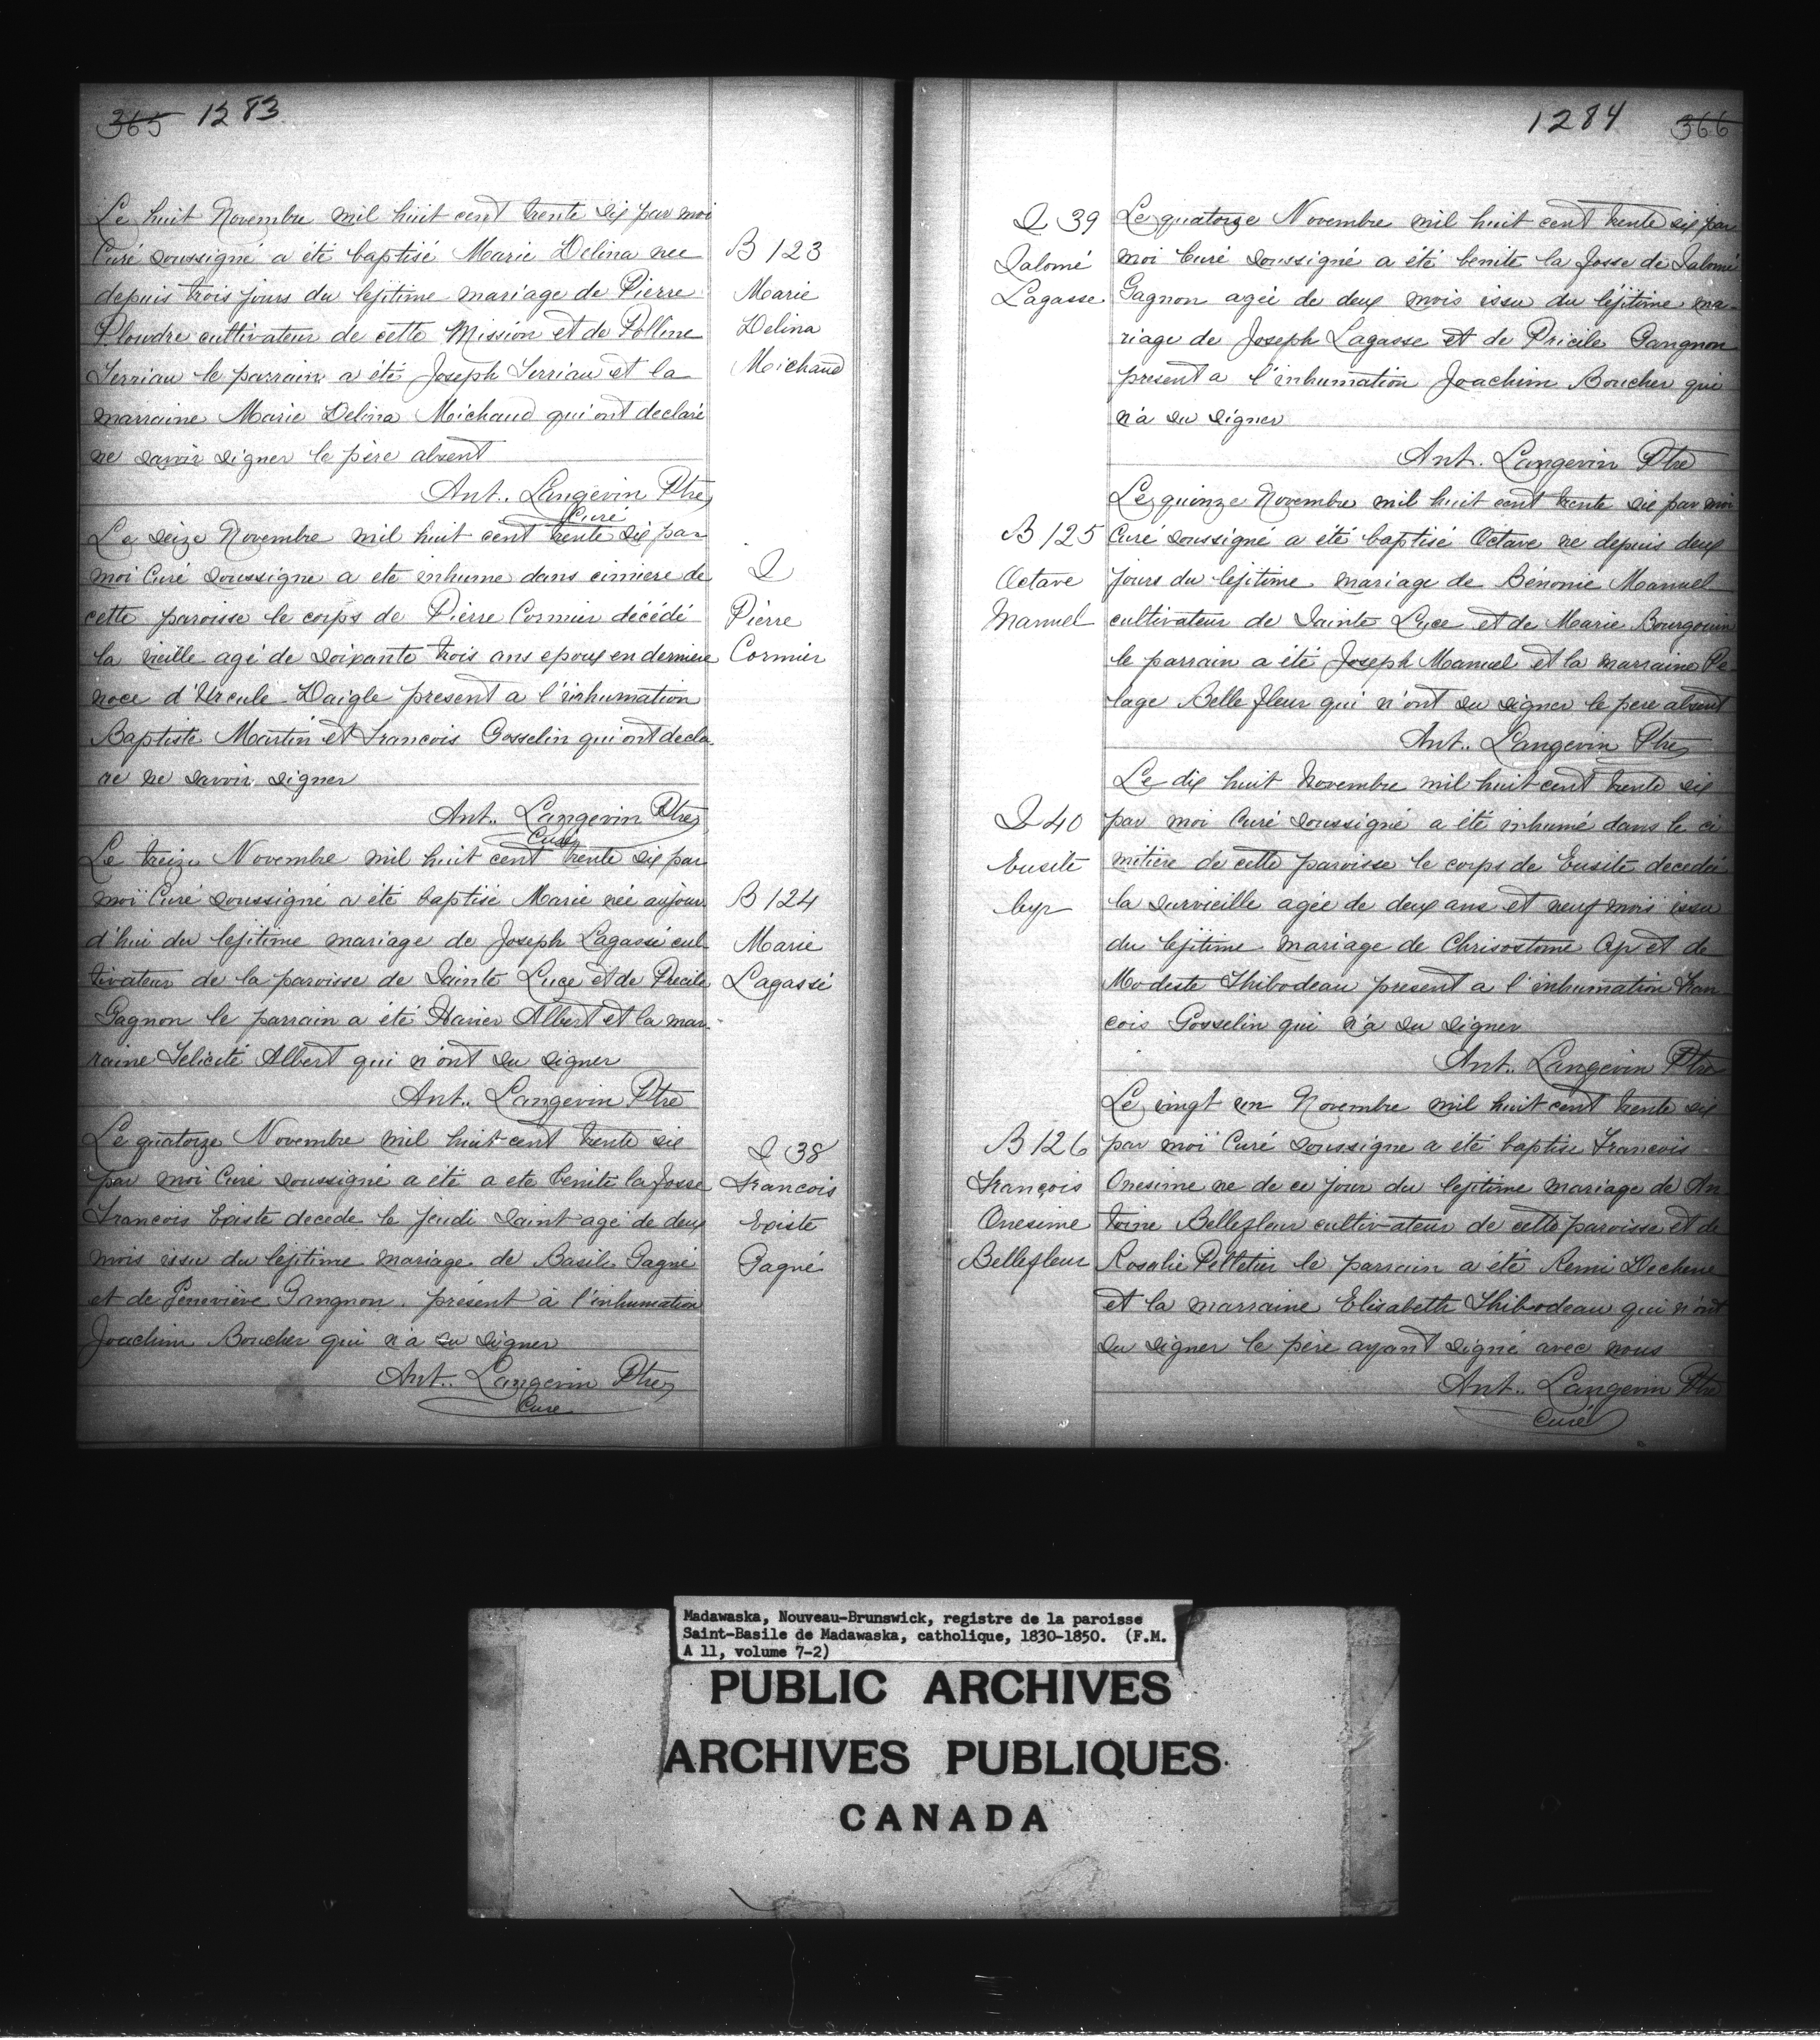 365 1283
Le huit Novembre mil huit cent trente six par moi
Curé soussigné a été baptisé Marie Delina nee
depuis trois jours du lejitime mariage de Pierre
Ploudre cultivateur de cette Mission et de Polline
Terriau le parrain a été Joseph Terriau et la
marraine Marie Delina Michaud qui ont declaré
ne savoir signer le père absent
Ant. Langevin Ptre
Curé
B 123
Marie
Delina
Michaud
Le seize Novembre mil huit cent trente six par
moi Curé soussigne a ete inhume dans cimiere de
cette paroisse le corps de Pierre Cormier décédé
la vieille agé de soixante trois ans epoux en derniere
noce d'Urcule Daigle present a l'inhumation
Baptiste Martin et Francois Gosselin qui ont decla
re ne savoir signer
Ant.. Langevin Ptre
Curé
S
Pierre
Cormier
Le treize Novembre mil huit cent trente six par
moi Curé soussigné a été baptisé Marie née aujour
d'hui du lejitime mariage de Joseph Lagassé cul
tivateur de la paroisse de Sainte Luce et de Precile
Gagnon le parrain a été Xavier Albert et la mar
raine Felicité Albert qui n'ont su signer
Ant.. Langevin Ptre
B 124
Marie
Lagassé
Le quatorze Novembre mil huit cent trente six
par moi Curé soussigné a été a ete benite la fosse
Francois Existe decede le jeudi saint agé de deux
mois issu du lejitime mariage de Basile Gagné
et de Geneviève Gangnon présent à l'inhumation
Joachim Boucher qui n'a su signer
Ant.. Langevin Ptre
Cure
S 38
Francois
Existe
Gagné
1284 366
S 39
Salomé
Lagasse
Le quatorze Novembre mil huit cent trente six par
moi Curé soussigné a été benite la fosse de Salomé
Gagnon agée de deux mois issu du léjitime ma
riage de Joseph Lagasse et de Pricile Gangnon
present a l'inhumation Joachim Boucher qui
n'a su signer
Ant. Langevin Ptre
B 125
Octave
Manuel
Le quinze Novembre mil huit cent trente six par moi
Curé soussigné a été baptisé Octave ne depuis deux
jours du lejitime mariage de Bénonie Manuel
cultivateur de Sainte Luce et de Marie Bourgouin
le parrain a été Joseph Manuel et la marraine Pe
lage Belle fleur qui n'ont su signer le pere absent
Ant.. Langevin Ptre
S 40
Eusite
Cyr
Le dix huit Novembre mil huit cent trente six
par moi Curé soussigné a été inhumé dans le ci
mitière de cette paroisse le corps de Eusite decedée
la survieille agée de deux ans et neuf mois issu
du lejitime mariage de Chrisostome Cyr et de
Modeste Thibodeau present a l'inhumation Fran
cois Gosselin qui n'a su signer
Ant.. Langevin Ptre
B 126
François
Onesime
Bellefleur
Le vingt un Novembre mil huit cent trente six
par moi Curé soussigne a été baptise Francois
Onesime ne de ce jour du lejitime mariage de An
toine Bellefleur cultivateur de cette paroisse et de
Rosalie Pelletier le parrain a été Remi Dechene
et la marraine Elisabeth Thibodeau qui n'ont
su signer le père ayant signé avec nous
Ant.. Langevin Ptre
Curé
Madawaska, Nouveau-Brunswick, registre de la paroisse
Saint-Basile de Madawaska, catholique, 1830-1850. (F.M.
A 11, volume 7-2)
PUBLIC ARCHIVES
ARCHIVES PUBLIQUES
CANADA